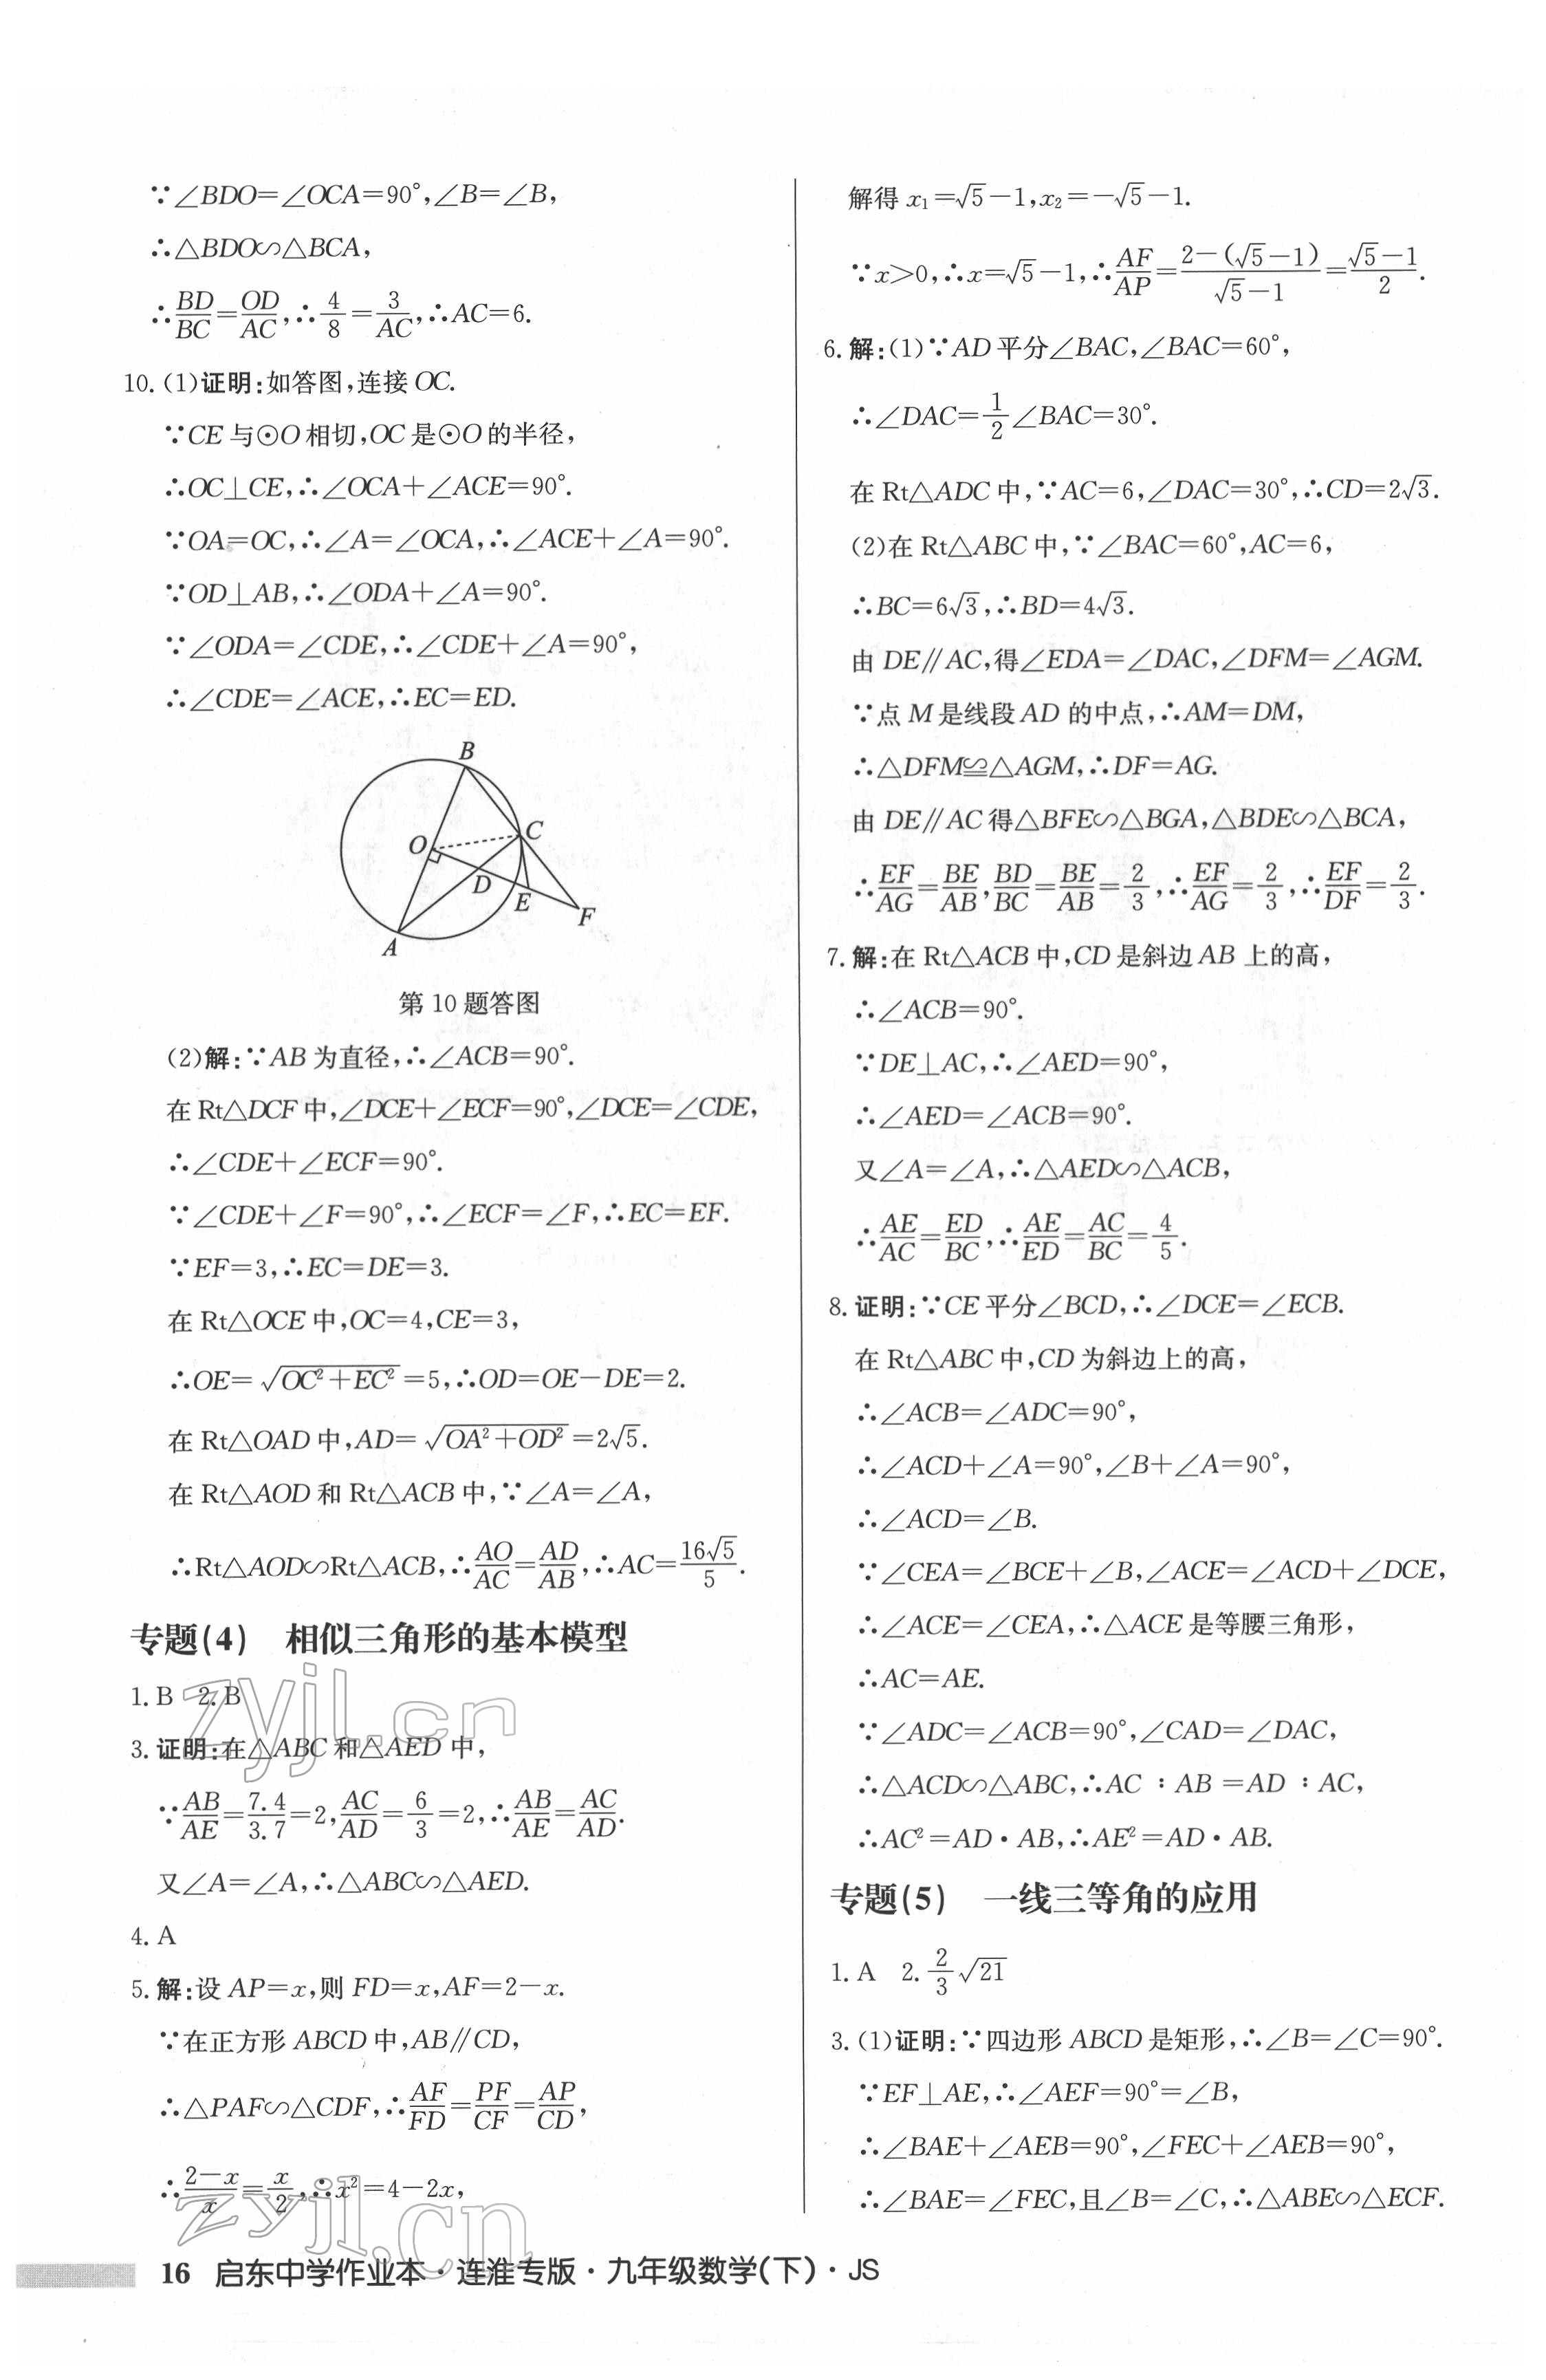 ∵∠BDO=∠OCA=90°,∠B=∠B,
∴△BDO∽△BCA,
∴BD/BC=OD/AC,∴4/8=3/AC,∴AC=6.
10.(1)证明:如答图,连接OC.
∵CE与⊙O相切,OC是⊙O的半径,
∴OC⊥CE,∴∠OCA+∠ACE=90°.
∵OA=OC,∴∠A=∠OCA,∴∠ACE+∠A=90°.
∵OD⊥AB,∴∠ODA+∠A=90°.
∵∠ODA=∠CDE,∴∠CDE+∠A=90°,
∴∠CDE=∠ACE,∴EC=ED.
B
O
C
D
E
F
A
第10题答图
(2)解:∵AB为直径,∴∠ACB=90°.
在Rt△DCF中,∠DCE+∠ECF=90°,∠DCE=∠CDE,
∴∠CDE+∠ECF=90°.
∵∠CDE+∠F=90°,∴∠ECF=∠F,∴EC=EF.
∵EF=3,∴EC=DE=3.
在Rt△OCE中,OC=4,CE=3,
∴OE=√(OC²+EC²)=5,∴OD=OE−DE=2.
在Rt△OAD中,AD=√(OA²+OD²)=2√5.
在Rt△AOD和Rt△ACB中,∵∠A=∠A,
∴Rt△AOD∽Rt△ACB,∴AO/AC=AD/AB,∴AC=16√5/5.
专题(4) 相似三角形的基本模型
1.B 2.B
3.证明:在△ABC和△AED中,
∵AB/AE=7.4/3.7=2,AC/AD=6/3=2,∴AB/AE=AC/AD.
又∠A=∠A,∴△ABC∽△AED.
4.A
5.解:设AP=x,则FD=x,AF=2−x.
∵在正方形ABCD中,AB∥CD,
∴△PAF∽△CDF,∴AF/FD=PF/CF=AP/CD,
∴(2−x)/x=x/2,∴x²=4−2x,
解得x₁=√5−1,x₂=−√5−1.
∵x>0,∴x=√5−1,∴AF/AP=(2−(√5−1))/(√5−1)=(√5−1)/2.
6.解:(1)∵AD平分∠BAC,∠BAC=60°,
∴∠DAC=1/2∠BAC=30°.
在Rt△ADC中,∵AC=6,∠DAC=30°,∴CD=2√3.
(2)在Rt△ABC中,∵∠BAC=60°,AC=6,
∴BC=6√3,∴BD=4√3.
由DE∥AC,得∠EDA=∠DAC,∠DFM=∠AGM.
∵点M是线段AD的中点,∴AM=DM,
∴△DFM≌△AGM,∴DF=AG.
由DE∥AC得△BFE∽△BGA,△BDE∽△BCA,
∴EF/AG=BE/AB,BD/BC=BE/AB=2/3,∴EF/AG=2/3,∴EF/DF=2/3.
7.解:在Rt△ACB中,CD是斜边AB上的高,
∴∠ACB=90°.
∵DE⊥AC,∴∠AED=90°,
∴∠AED=∠ACB=90°.
又∠A=∠A,∴△AED∽△ACB,
∴AE/AC=ED/BC,∴AE/ED=AC/BC=4/5.
8.证明:∵CE平分∠BCD,∴∠DCE=∠ECB.
在Rt△ABC中,CD为斜边上的高,
∴∠ACB=∠ADC=90°,
∴∠ACD+∠A=90°,∠B+∠A=90°,
∴∠ACD=∠B.
∵∠CEA=∠BCE+∠B,∠ACE=∠ACD+∠DCE,
∴∠ACE=∠CEA,∴△ACE是等腰三角形,
∴AC=AE.
∵∠ADC=∠ACB=90°,∠CAD=∠DAC,
∴△ACD∽△ABC,∴AC:AB=AD:AC,
∴AC²=AD·AB,∴AE²=AD·AB.
专题(5) 一线三等角的应用
1.A 2.2/3√21
3.(1)证明:∵四边形ABCD是矩形,∴∠B=∠C=90°.
∵EF⊥AE,∴∠AEF=90°=∠B,
∴∠BAE+∠AEB=90°,∠FEC+∠AEB=90°,
∴∠BAE=∠FEC,且∠B=∠C,∴△ABE∽△ECF.
zyjl.cn
zyjl.cn
16 启东中学作业本·连淮专版·九年级数学(下)·JS